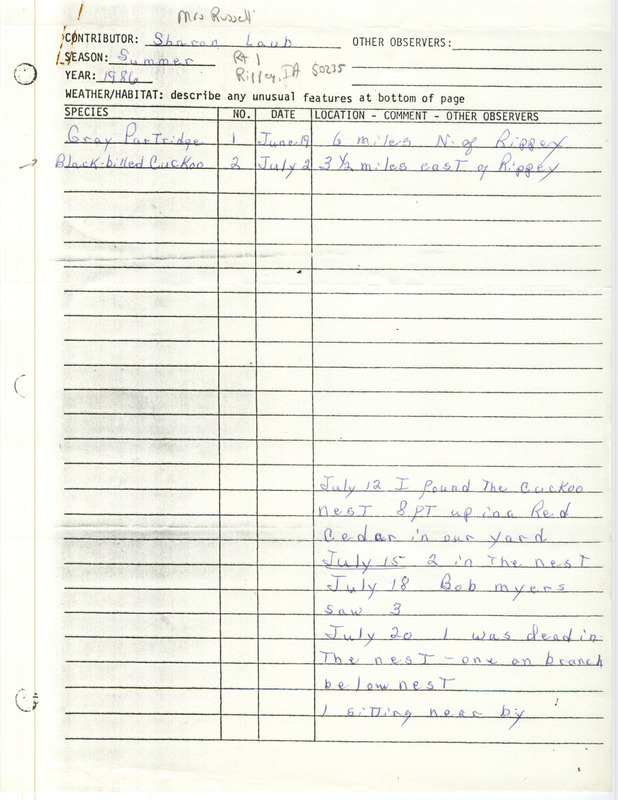 Mrs Russell
CONTRIBUTOR: Sharon Laub OTHER OBSERVERS:
SEASON: Summer Rt 1
YEAR: 1986 Rippey, IA 50235
WEATHER/HABITAT: describe any unusual features at bottom of page
SPECIES NO. DATE LOCATION - COMMENT - OTHER OBSERVERS
Gray Partridge 1 June 19 6 miles N. of Rippey
Black-billed Cuckoo 2 July 2 3 1/2 miles east of Rippey
July 12 I found The Cuckoo
nest 8 FT up in a Red
Cedar in our yard
July 15 2 in The nest
July 18 Bob myers
saw 3
July 20 1 was dead in
The nest - one on branch
below nest
1 sitting near by